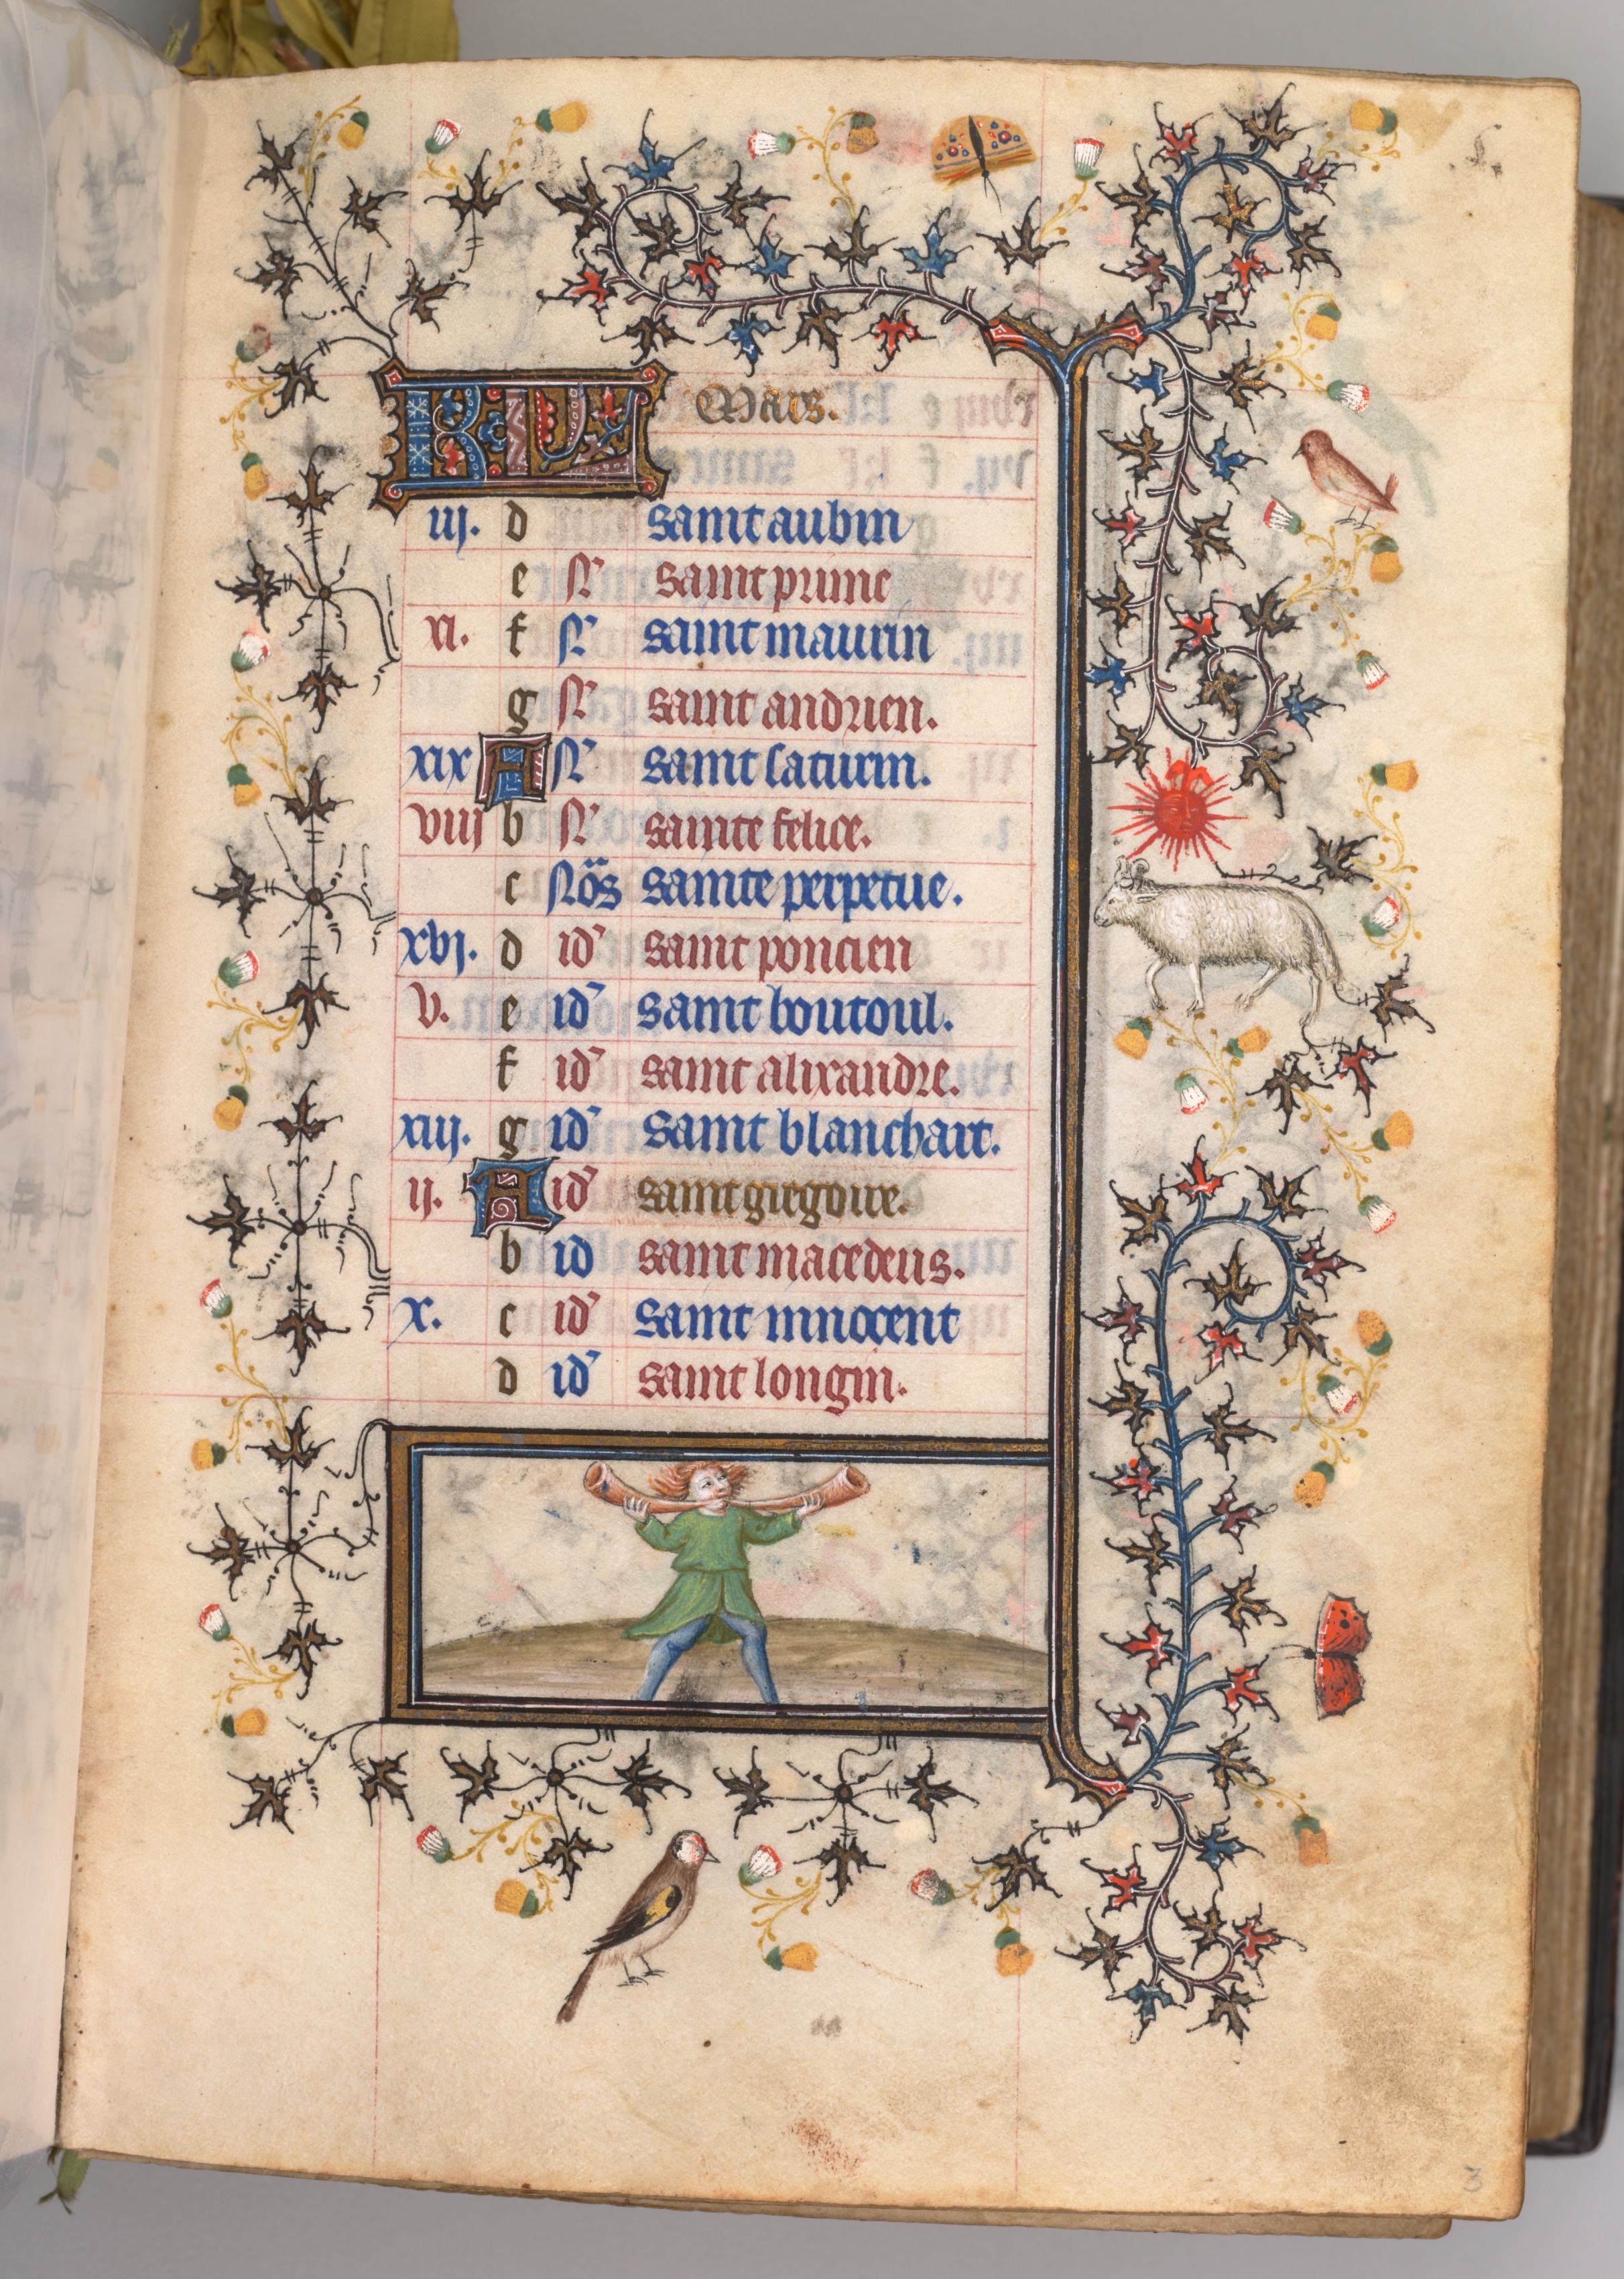 KL Mars.
iij. d saint aubin
e N saint prime
vi. f N saint maurin
g N saint andrien.
xix A N saint saturin.
viij b N sainte felice.
c Nős sainte perpetue.
xvj. d id saint poncien
v. e id saint boutoul.
f id saint alixandre.
xiij. g id saint blanchart.
ij. A id saint gregoire.
b id saint macedeus.
x. c id saint innocent
d id saint longin.
3